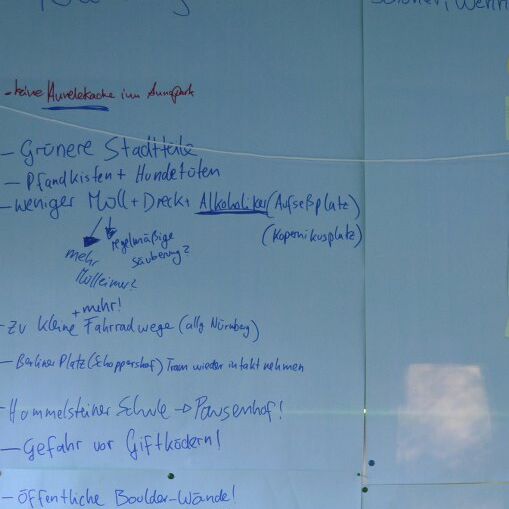 - keine Hundekacke im Annapark
- Grünere Stadtteile
- Pfandkisten + Hundetüten
- weniger Müll + Dreck + Alkoholiker (Aufseßplatz)
(Kopernikusplatz)
regelmäßige
säuberung?
mehr
Mülleimer?
+ mehr!
- Zu kleine Fahrradwege (allg Nürnberg)
- Berliner Platz (Schoppershof) Tram wieder in takt nehmen
- Hummelsteiner Schule → Pausenhof!
- Gefahr vor Giftködern!
- öffentliche Boulder-Wände!